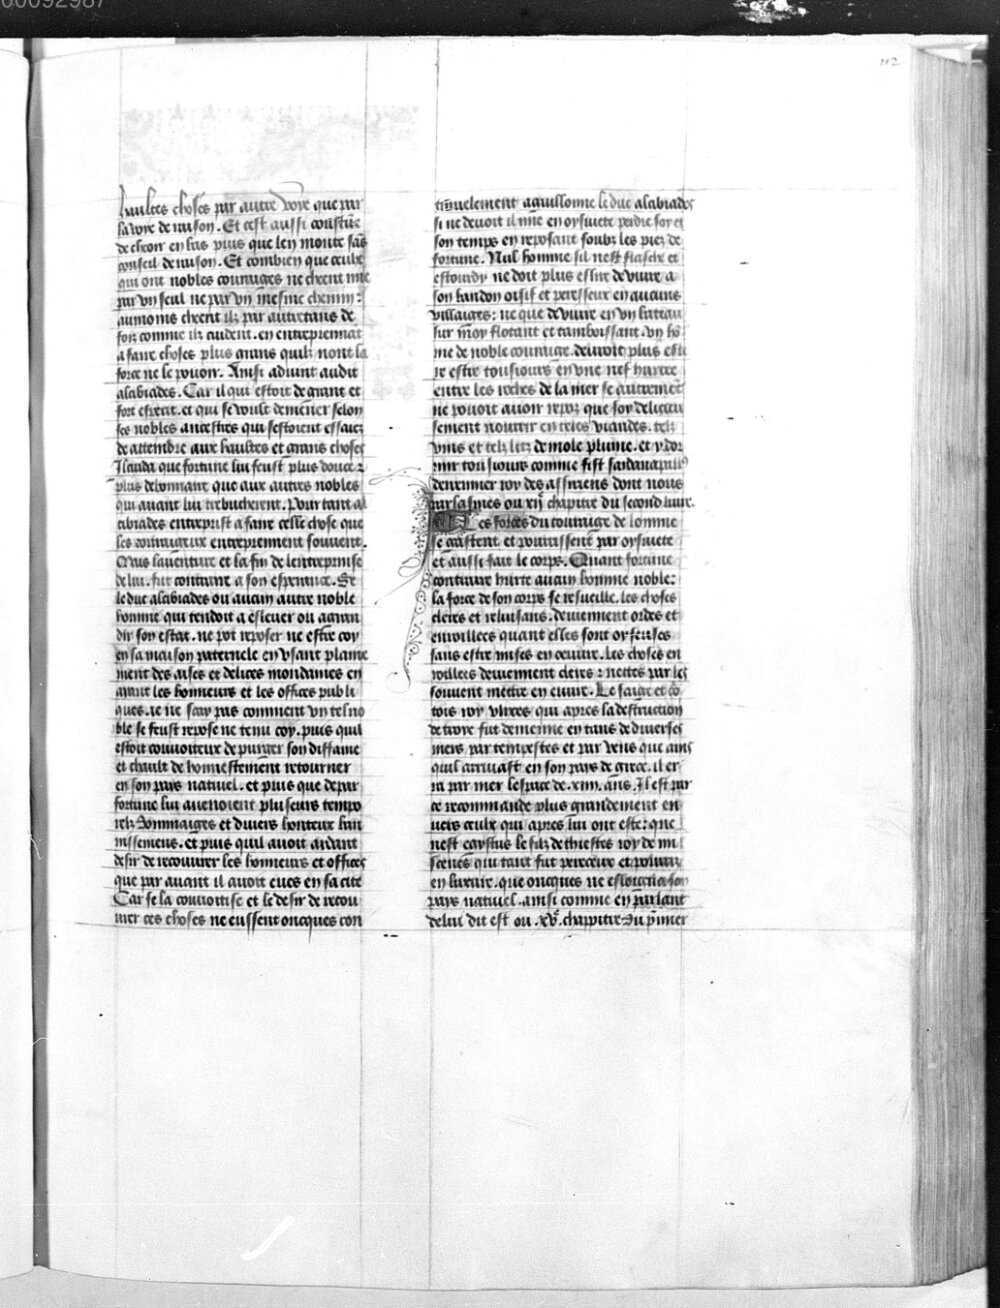 112
haultes choses par autre voye que par
la voye de raison. Et cest aussi coustūe
de cheoir en bas puis que len monte sās
conseil de raison. Et combien que ceulx
qui ont nobles couraiges ne cheent mie
par vn seul ne par vn mesme chemin:
aumoins cheent ilz par autretans de
foiz comme ilz cuident. en entreprennāt
a faire choses plus grans quilz nont la
force ne le pouoir. Ainsi adiunt audit
alabiades. Car il qui estoit de grant et
fort esperit. et qui se voult demener selon
ses nobles ancestres qui sestoient essaiez
de attendre aux haultes et grans choses
Il cuida que fortune lui feust plus doulce:
plus debonnaire que aux autres nobles
qui auant lui trebucherent. Pour tant al
cibiades entreprist a faire celle chose que
les courageux entreprennent souuent.
Mais lauenture et la fin de lentreprinse
de lui. fut contraire a son esperance. Se
le duc alabiades ou aucun autre noble
homme qui tendoit a esleuer ou agran
dir son estat. ne pot reposer ne estre coy
en sa maison paternele en vsant plaine
ment des aises et delices mondaines en
aiant les honneurs et les offices publi
ques. ie ne scay pas comment vn tel no
ble se feust repose ne tenu coy. puis quil
estoit couuoiteux de purger son diffame
et chault de honnestement retourner
en son pais naturel. et puis que depar
fortune lui auenoient pluseurs tempo
relz dommaiges et diuers honteux ban
nissemens. et puis quil auoit ardant
desir de recouurer les honneurs et offices
que par auant il auoit eues en sa cite
Car se la couuoitise et le desir de recou
urer ces choses ne eussent oncques con
tinuelement aguillonne le duc alabiades
si ne deuoit il mie en oysiuete perdre soy et
son temps en reposant soubz les piez de
fortune. Nul homme sil nest flasche et
estourdy ne doit plus eslire de viure a
son bandon oisif et peresseux en aucuns
villaiges: ne que de viure en vn bateau
sur mōy flotant et tamboissant. vn hō
me de noble couraige. deuroit plus esli
re estre tousiours en vne nef hurtee
entre les roches de la mer se autrement
ne pouoit auoir repoz que soy delicieu
sement nourrir en teles viandes. telz
vins et telz litz de mole plume. et y dor
mir tousiours comme fist sardanapalus
derrenier roy des assiriens dont nous
parlasmes ou xij chapitre du second liure.
Les forces du couraige de lomme
se gastent et pourrissent par oysiuete
et aussi fait le corps. Quant fortune
contraire hurte aucun homme noble:
la force de son corps se resueille. les choses
cleres et reluisans. deuiennent ordes et
enroillees quant elles sont oyseuses
sans estre mises en oeuure. Les choses en
roillees deuiennent cleres: nettes par les
souuent mettre en euure. Le saige et co
tois roy vlixes qui apres la destruction
de troye fut demenne en tans de diuerses
mers par tempestes et par vens que ains
quil arriuast en son pays de grece. il er
ra par mer lespace de .xiiij. ans. Il est par
ce recommande plus grandement en
uers ceulx qui apres lui ont este: que
nest egystus le filz de thiestes roy de mi
scenes qui tant fut pereceux et pourry
en luxure. que oncques ne eslongna son
pays naturel. ainsi comme en parlant
de lui dit est ou .xve. chapitre du p̄mier